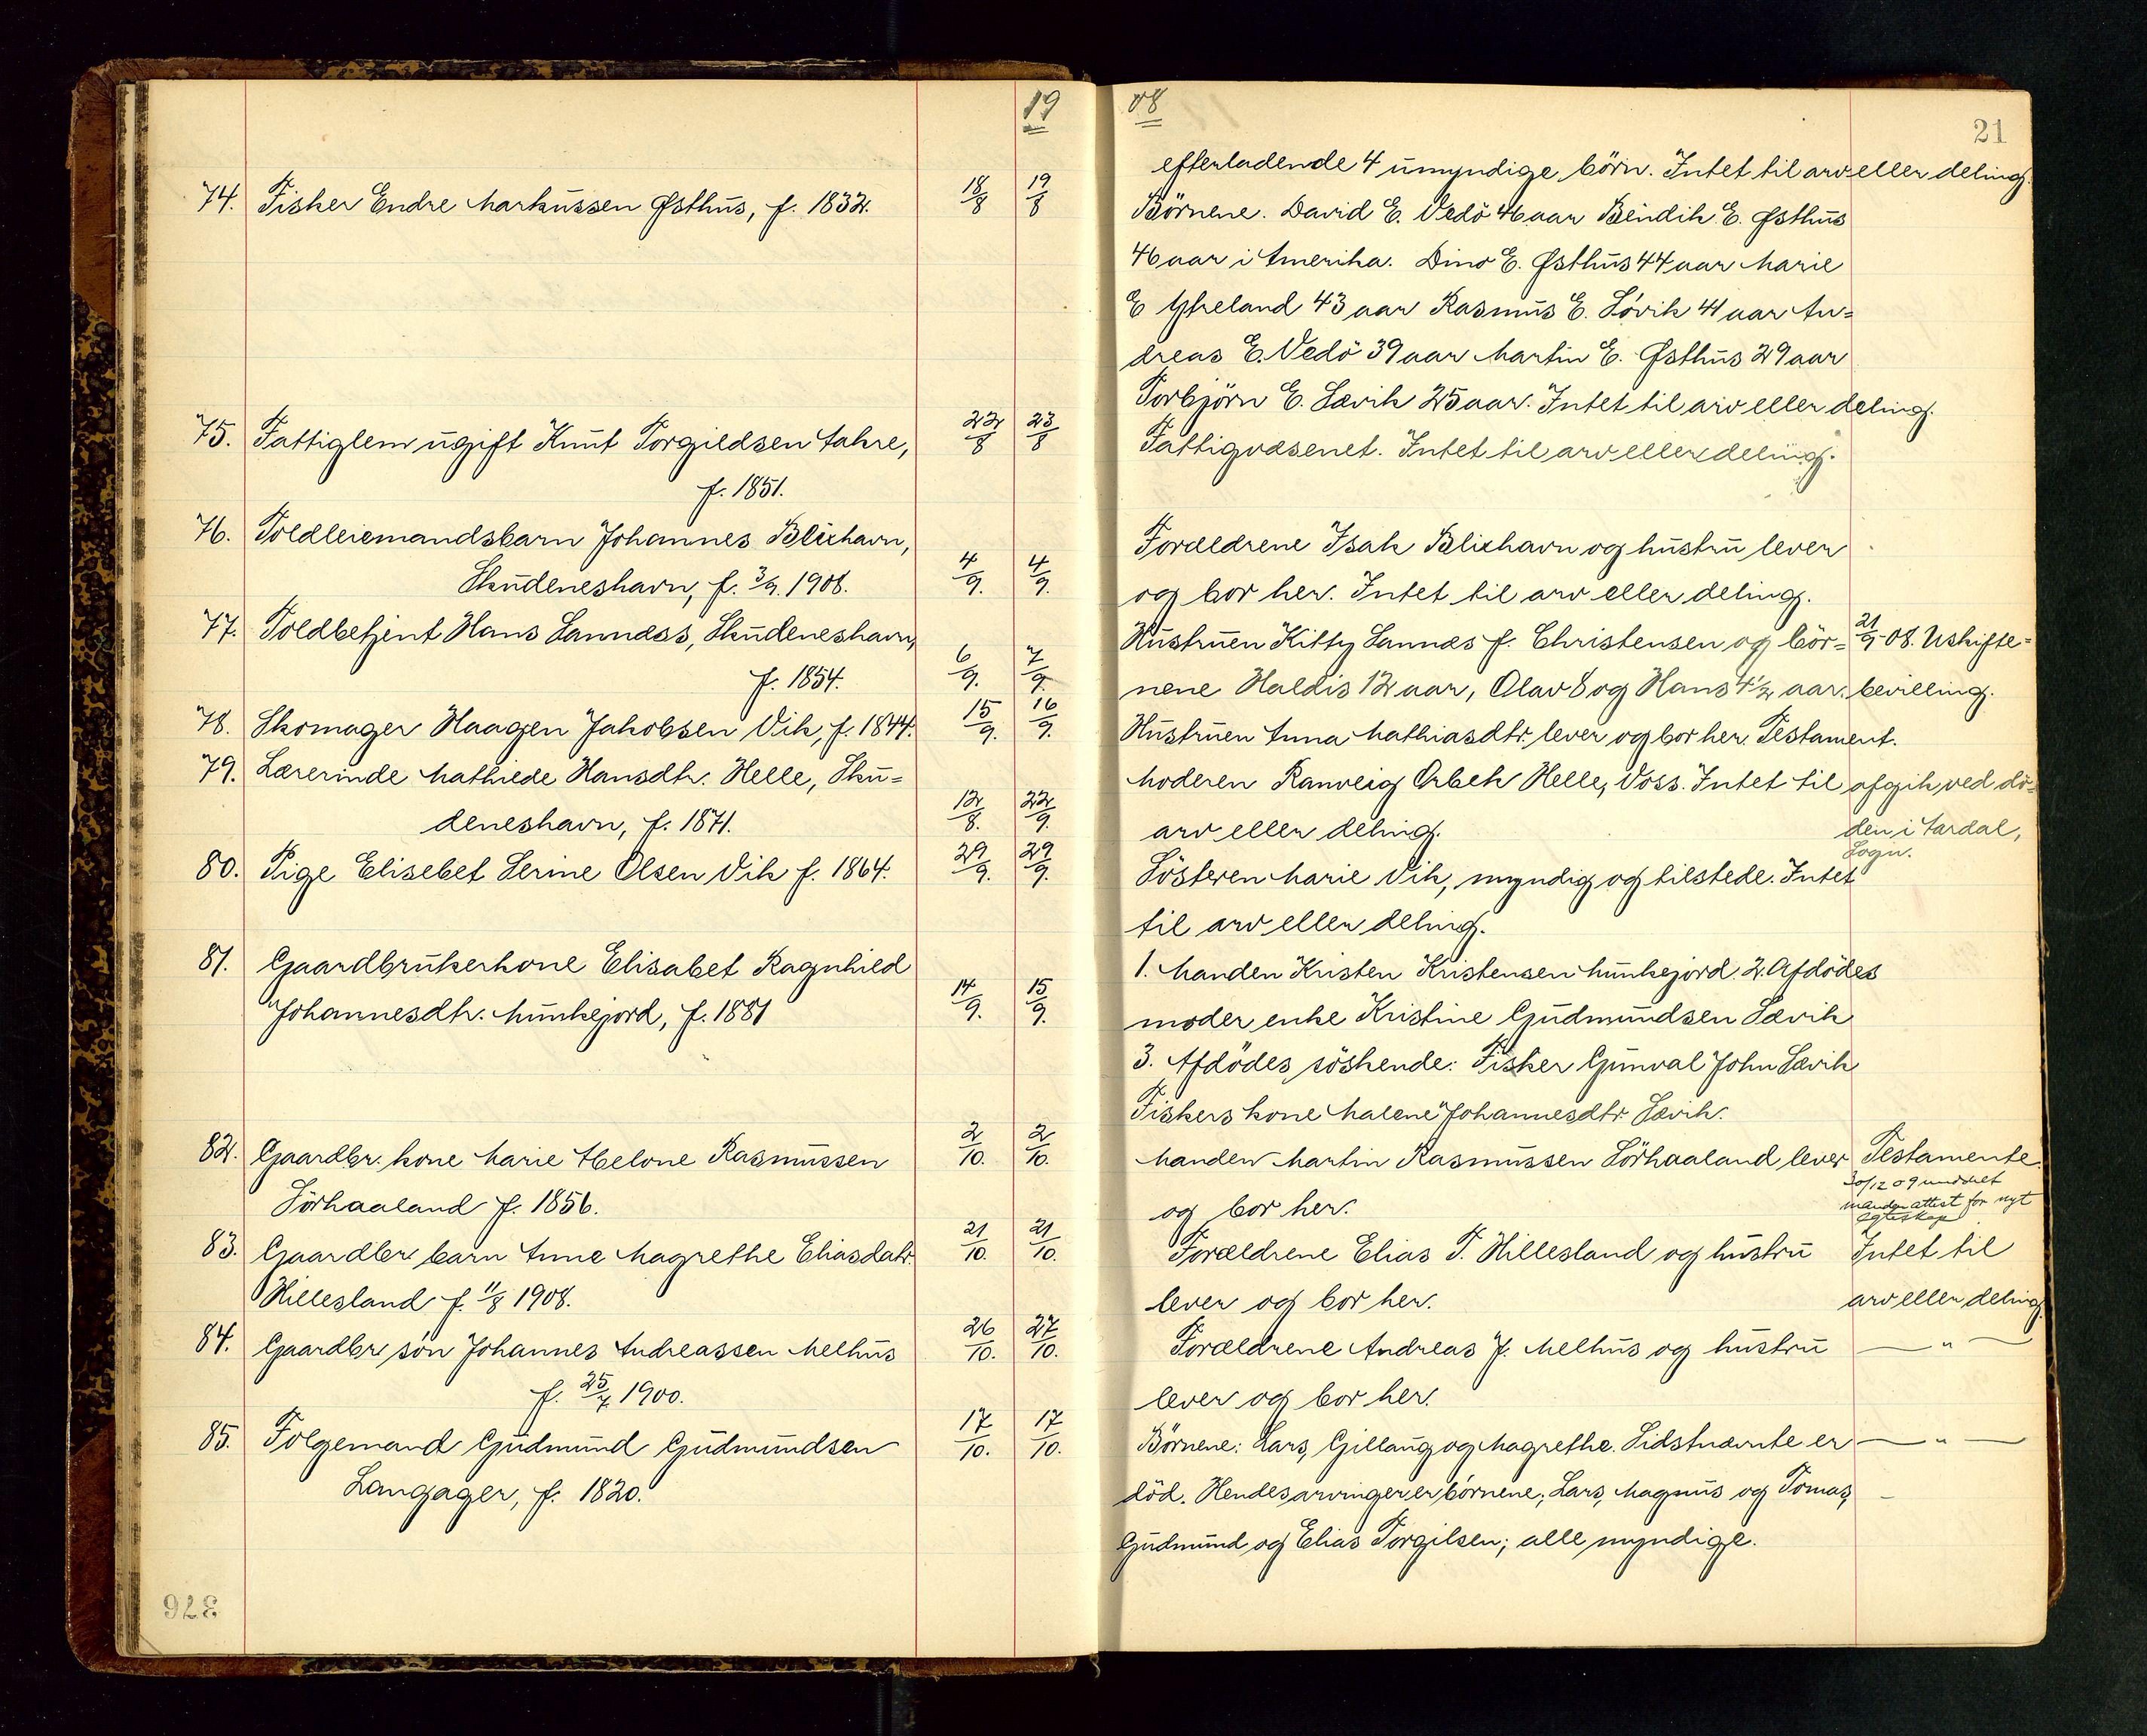 19
74. Fisker Endre Markussen Østhus, f. 1832. 18/8 19/8
75. Fattiglem ugift Knut Torgieldsen Aakre, 22/8 23/8
f. 1851.
76. Toldleiemandsbarn Johannes Blixhavn,
Skudeneshavn, f. 3/9. 1908. 4/9. 4/9.
77. Toldbetjent Hans Sannæss, Skudeneshavn,
f. 1854. 6/9. 7/9.
78. Skomager Haagen Jakobsen Vik, f. 1844. 15/9. 16/9.
79. Lærerinde Mathiede Hansdtr. Helle, Sku=
deneshavn, f. 1871. 12/8. 22/9.
80. Pige Elisebet Serine Olsen Vik f. 1864. 29/9. 29/9.
81. Gaardbrukerkone Elisabet Ragnhild
Johannesdtr. Munkejord, f. 1881 14/9. 15/9.
82. Gaardbr. kone Marie Helone Rasmussen 2/10. 2/10.
Sörhaaland f. 1856.
83. Gaardbr barn Anne Magrethe Eliasdatr. 21/10. 21/10.
Hillesland f. 11/8 1908.
84. Gaardbr sön Johannes Andreassen Melhus 26/10. 27/10.
f. 25/7 1900.
85. Folgemand Gudmund Gudmundsen 17/10. 17/10.
Langager, f. 1820.
376
08
21
efterladende 4 umyndige börn. Intet til arv eller deling.
Börnene. David E. Vedö 46 aar Bendik E. Østhus
46 aar i Amerika. Dino E. Østhus 44 aar Marie
E Ytreland 43 aar Rasmus E. Sövik 41 aar An=
dreas E. Vedö 39 aar Martin E. Østhus 29 aar
Torbjörn E. Sævik 25 aar. Intet til arv eller deling.
Fattigvæsenet. Intet til arv eller deling.
Forældrene Isak Blixhavn og hustru lever
og bor her. Intet til arv eller deling.
Hustruen Kitty Sannæs f. Christensen og bör= 21/9-08. Uskifte=
nene Haldis 12 aar, Olav 8 og Hans 4 1/2 aar. bevilling.
Hustruen Anna Mathiasdtr. lever og bor her. Testament.
Moderen Ranveig Orbek Helle, Voss. Intet til afgik ved dö=
arv eller deling. den i Aardal,
Sogn.
Sösteren Marie Vik, myndig og tilstede. Intet
til arv eller deling.
1. Manden Kristen Kristensen Munkejord. 2. Afdödes
moder enke Kristine Gudmundsen Sævik
3. Afdödes söskende: Fisker Gunval John Sævik
Fiskers kone Malene Johannesdtr. Sævik.
Manden Martin Rasmussen Sörhaaland lever Testamente.
30/12 09 meddelt
manden attest for nyt
egteskap
og bor her.
Forældrene Elias T. Hillesland og hustru Intet til
lever og bor her. arv eller deling
Forældrene Andreas J. Melhus og hustru — " —
lever og bor her.
Börnene: Lars, Gillaug og Magrethe. Sidstnævnte er — " —
död. Hendes arvinger er börnene; Lars, Magnus og Tomas,
Gudmund og Elias Torgilsen; alle myndige.